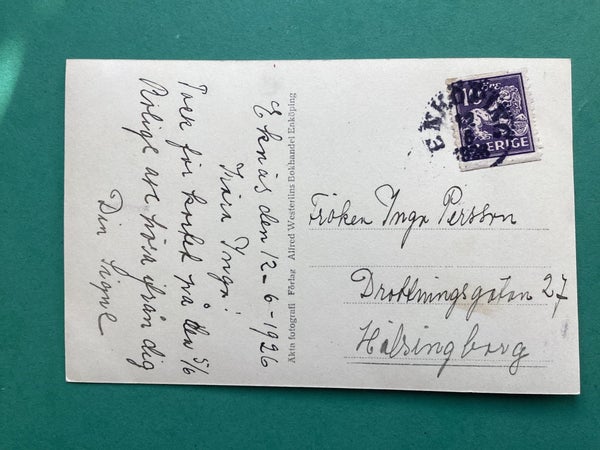 Eknäs den 12-6-1926
Kära Inga!
Tack för kortet på den 5/6
Roligt att höra ifrån dig
Din Signe
Äkta fotografi Förlag Alfred Westerlins Bokhandel Enköping
15 ÖRE
SVERIGE
ENKÖPING
Fröken Inga Persson
Drottningsgatan 27
Hälsingborg